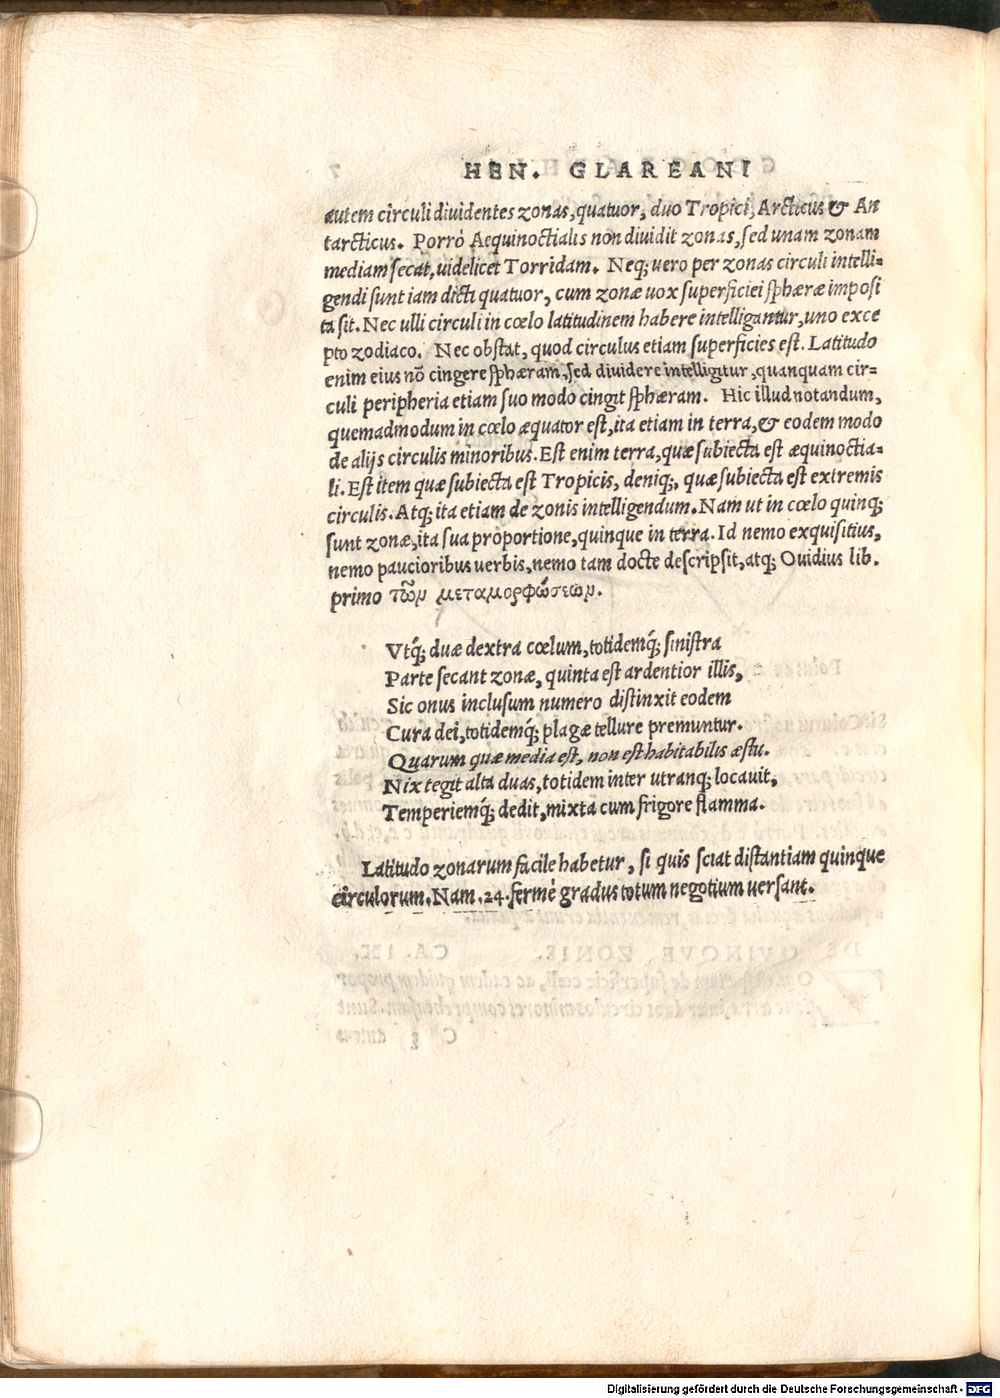 HEN. GLAREANI
autem circuli diuidentes zonas, quatuor, duo Tropici, Arcticus & An
tarcticus. Porrò Aequinoctialis non diuidit zonas, sed unam zonam
mediam secat, uidelicet Torridam. Neq; uero per zonas circuli intelli=
gendi sunt iam dicti quatuor, cum zonæ uox superficiei sphæræ imposi
ta sit. Nec ulli circuli in cœlo latitudinem habere intelligantur, uno exce
pto zodiaco. Nec obstat, quod circulus etiam superficies est. Latitudo
enim eius nõ cingere sphæram, sed diuidere intelligitur, quanquam cir=
culi peripheria etiam suo modo cingit sphæram. Hic illud notandum,
quemadmodum in cœlo æquator est, ita etiam in terra, & eodem modo
de alijs circulis minoribus. Est enim terra, quæ subiecta est æquinoctia=
li. Est item quæ subiecta est Tropicis, deniq;, quæ subiecta est extremis
circulis. Atq; ita etiam de zonis intelligendum. Nam ut in cœlo quinq;
sunt zonæ, ita sua proportione, quinque in terra. Id nemo exquisitius,
nemo paucioribus uerbis, nemo tam docte descripsit, atq; Ouidius lib.
primo τῶν μεταμορφώσεων.
Vtq́; duæ dextra cœlum, totidemq́; sinistra
Parte secant zonæ, quinta est ardentior illis,
Sic onus inclusum numero distinxit eodem
Cura dei, totidemq́; plagæ tellure premuntur.
Quarum quæ media est, non est habitabilis æstu.
Nix tegit alta duas, totidem inter utranq; locauit,
Temperiemq́; dedit, mixta cum frigore flamma.
Latitudo zonarum facile habetur, si quis sciat distantiam quinque
circulorum. Nam .24. fermè gradus totum negotium uersant.
Digitalisierung gefördert durch die Deutsche Forschungsgemeinschaft - DFG